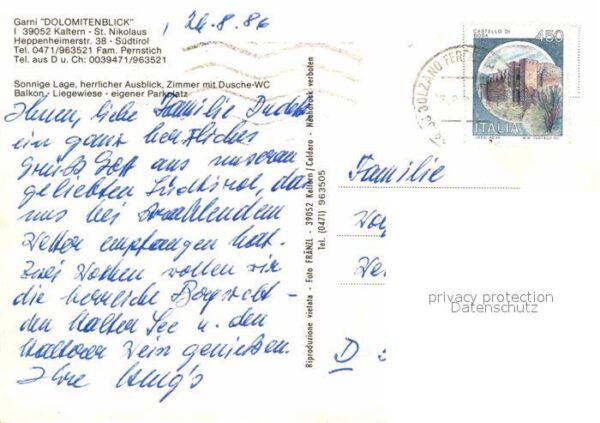 Garni "DOLOMITENBLICK"
I 39052 Kaltern - St. Nikolaus
Heppenheimerstr. 38 - Südtirol
Tel. 0471/963521 Fam. Pernstich
Tel. aus D u. Ch: 0039471/963521
Sonnige Lage, herrlicher Ausblick, Zimmer mit Dusche-WC
Balkon, - Liegewiese - eigener Parkplatz
26.8.86
Ihnen, liebe Familie
ein ganz herzliches
Grüß Gott aus unserem
geliebten Südtirol, das
uns bei strahlendem
Wetter empfangen hat.
Zwei Wochen wollen wir
die herrliche Bergwelt -
den Kalterer See u. den
Kalterer Wein genießen.
Ihre
Riproduzione vietata - Foto FRÄNZL - 39052 Kaltern/Caldaro - Nachdruck verboten
Tel. (0471) 963505
CASTELLO DI
ROSA
450
ITALIA
BOLZANO FERR
Familie
D
privacy protection
Datenschutz